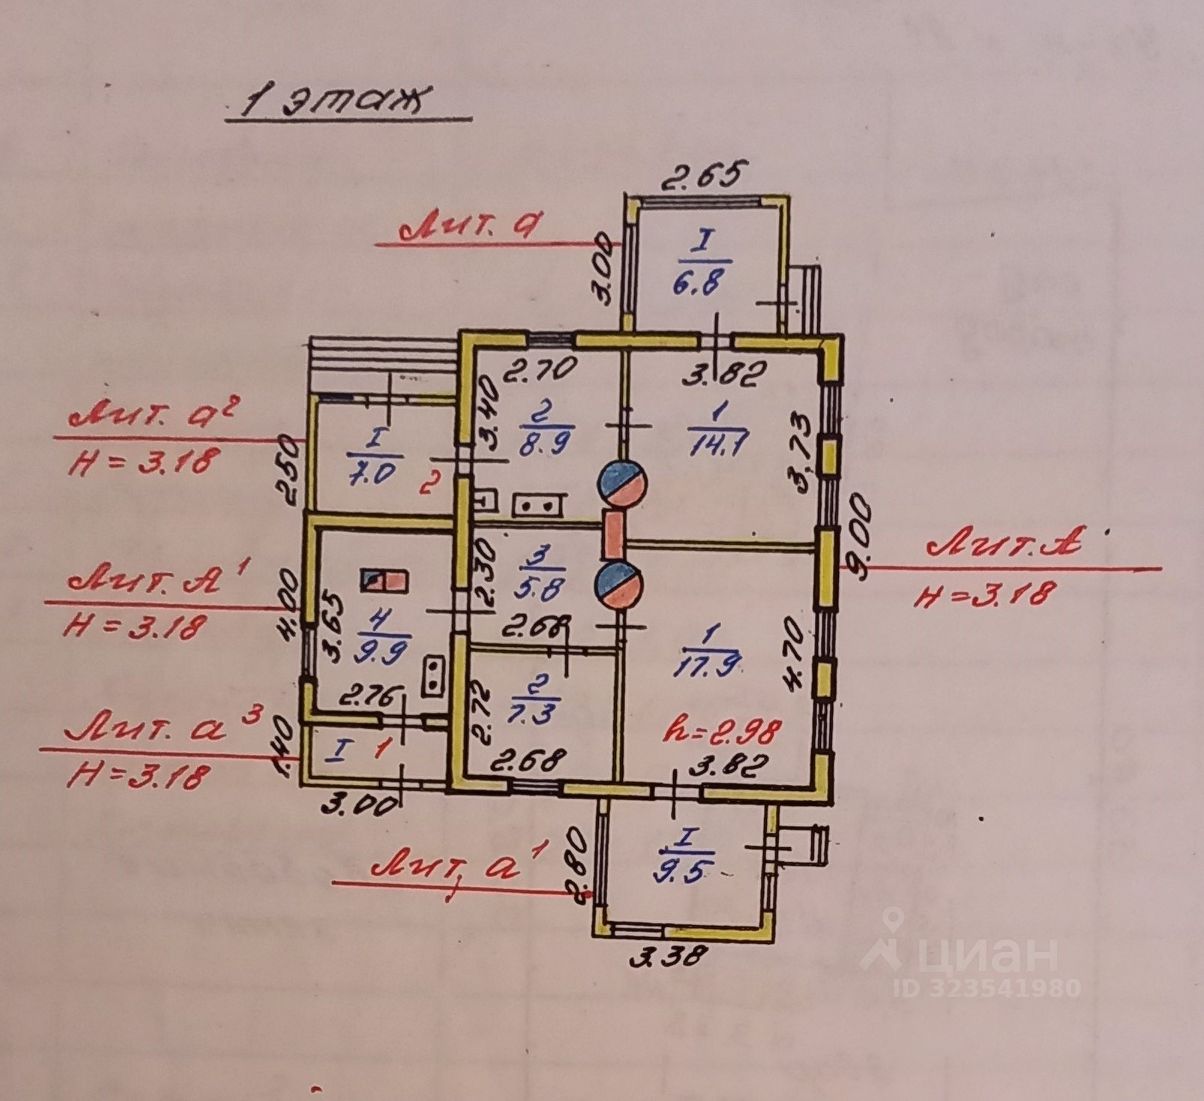 1 этаж
2.65
Лит. а
3.00
I
6.8
2.70
3.82
Лит. а²
Н = 3.18
2.50
I
7.0
2
3.40
2
8.9
1
14.1
3.73
9.00
Лит. А
Н = 3.18
Лит. А¹
Н = 3.18
4.00
3.65
4
9.9
2.76
2.30
3
5.8
2.68
1
17.9
4.70
h = 2.98
3.82
2.72
2
7.3
2.68
Лит. а³
Н = 3.18
1.40
I 1
3.00
Лит. а¹
2.80
I
9.5
3.38
циан
ID 323541980